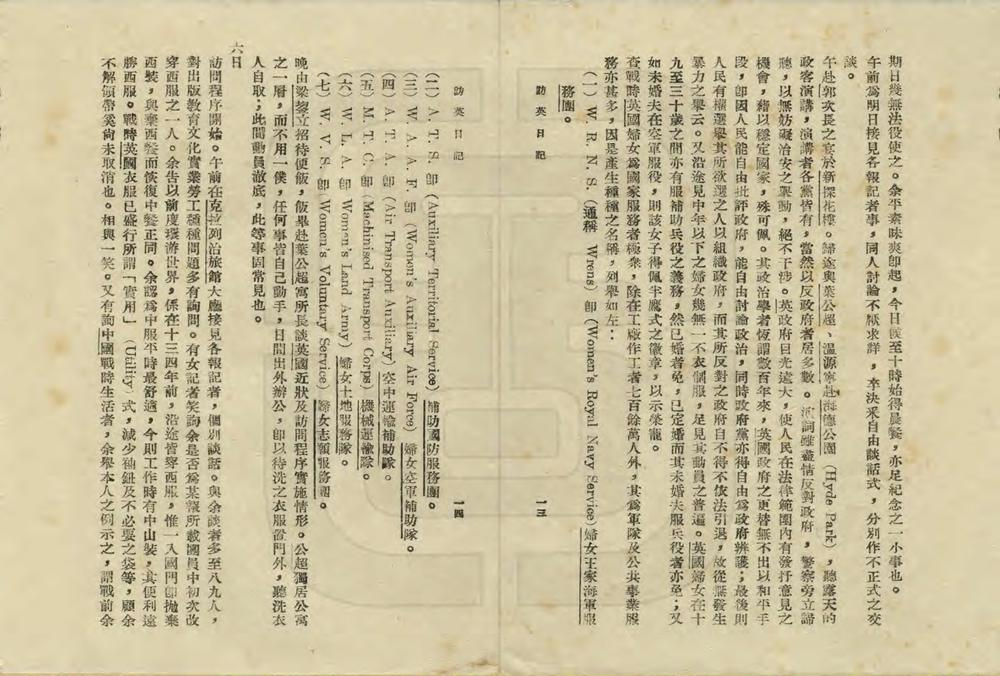 期日幾無法役使之。余平素昧爽卽起，今日候至十時始得晨餐，亦足紀念之一小事也。
午前爲明日接見各報記者事，同人討論不厭求詳，李決采自由談話式，分別作不正式之交
談。
午赴郭次長之宴於新探花樓。歸途與葉公超、溫源寧赴海德公園（Hyde Park），聽露天的
政客演講，演講者各黨皆有，當然以反政府者居多數。演詞雖盡情反對政府，警察旁立歸
聽，以無妨礙治安之舉動，絕不干涉。英政府目光遠大，使人民在法律範圍內有發抒意見之
機會，藉以穩定國家，殊可佩。其政治學者恆謂數百年來，英國政府之更替無不出以和平手
段，卽因人民能自由批評政府，能自由討論政治，同時政府黨亦得自由爲政府辨護；最後則
人民有權選舉其所欲選之人以組織政府，而其所反對之政府自不得不依法引退，故從無發生
暴力之舉云。又沿途見中年以下之婦女幾無一不衣制服，足見其動員之普遍。英國婦女在十
九至三十歲之間亦有服補助兵役之義務，然已婚者免，已定婚而其未婚夫服兵役者亦免；又
如未婚夫在空軍服役，則該女子得佩半鷹式之徽章，以示榮寵。
查戰時英國婦女爲國家服務者極衆，除在工廠作工者七百餘萬人外，其爲軍隊及公共事業服
務亦甚多，因是產生種種之名稱，列舉如左：
（一）W. R. N. S.（通稱 Wrens）卽（Women's Royal Navy Service）婦女王家海軍服
務團。
訪英日記
一三
訪英日記
一四
（二）A. T. S. 卽（Auxiliary Territorial Service）補助國防服務團。
（三）W. A. A. F. 卽（Women's Auxiliary Air Force）婦女空軍補助隊。
（四）A. T. A. 卽（Air Transport Auxiliary）空中運輸補助隊。
（五）M. T. C. 卽（Machinised Transport Corps）機械運輸隊。
（六）W. L. A. 卽（Women's Land Army）婦女土地服務隊。
（七）W. V. S. 卽（Women's Voluntary Service）婦女志願服務團。
晚由梁黎立招待便飯，飯畢赴葉公超寓所長談英國近狀及訪問程序實施情形。公超獨居公寓
之一層，而不用一僕，任何事皆自己動手，日間出外辦公，卽以待洗之衣服置門外，聽洗衣
人自取；此間動員澈底，此等事固常見也。
六日
訪問程序開始。午前在克拉列治旅館大廳接見各報記者，個別談話。與余談者多至八九人，
對出版教育文化實業勞工種種問題多有詢問。有女記者笑詢余是否爲某報所載團員中初次改
穿西服之一人。余告以前度環游世界，係在十三四年前，沿途皆穿西服，惟一入國門卽拋棄
西裝，與棄西裝而恢復中裝正同。余認爲中服平時最舒適，今則工作時有中山裝，其便利遠
勝西服。戰時英國衣服已盛行所謂「實用」（Utility）式，減少袖鈕及不必要之袋等，顧余
不解領帶奚尙未取消也。相與一笑。又有詢中國戰時生活者，余舉本人之例示之，謂戰前余